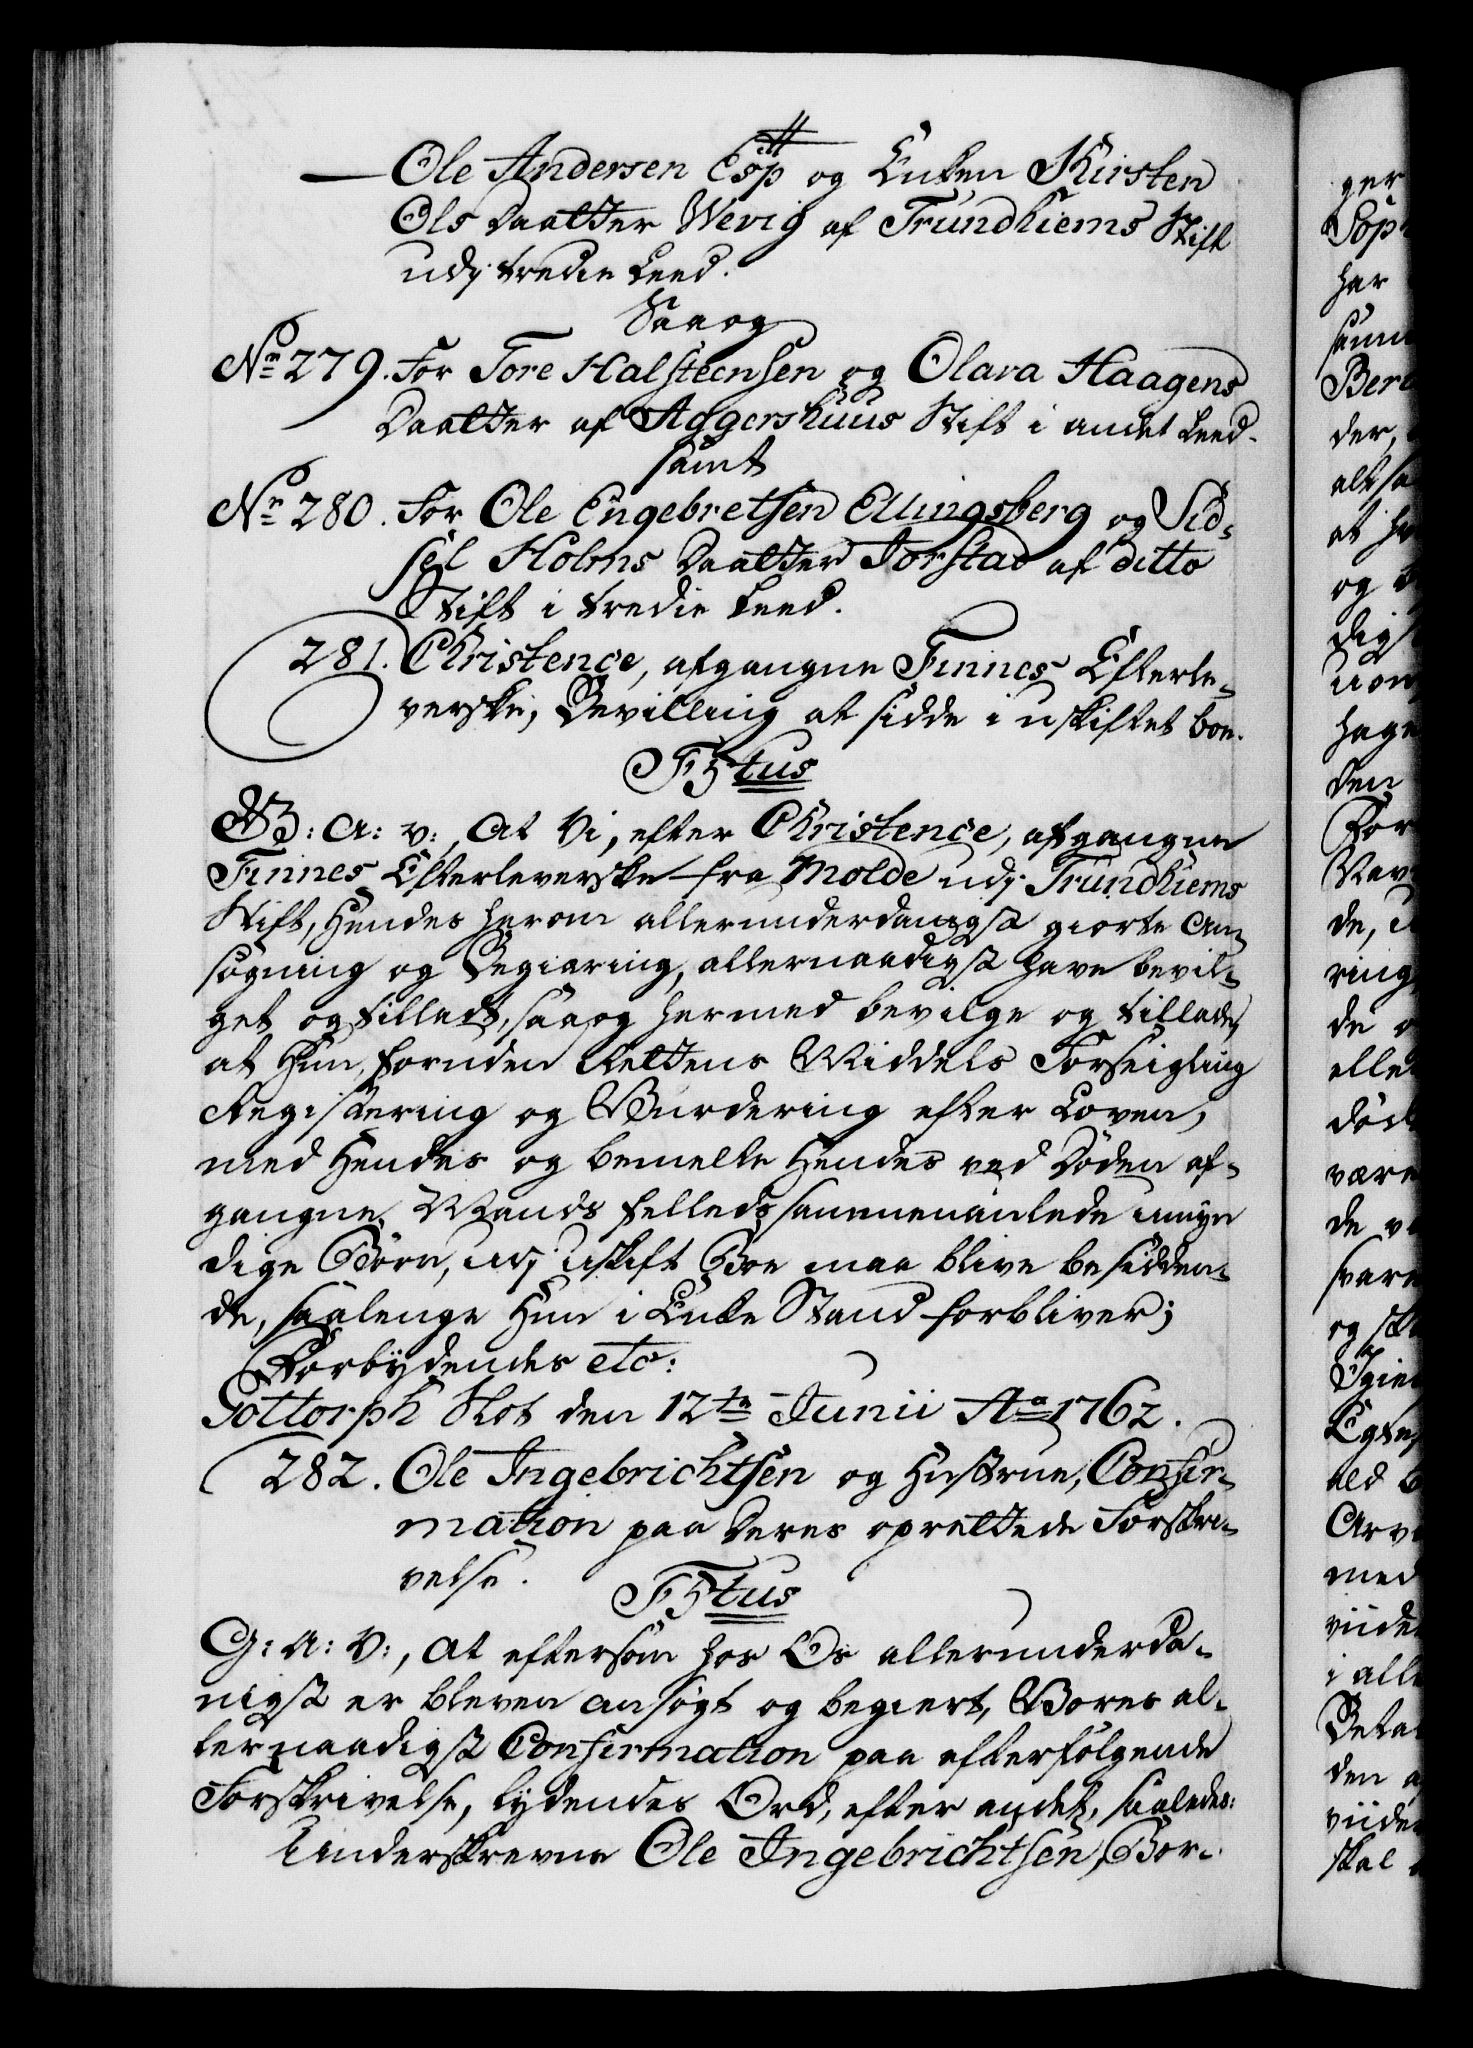 — Ole Andersen Esp og Enken Kirsten
Ols Daatter Wevig af Trundhiems Stift
udj tredie Leed.
Saaog
No 279. For Tore Halsteensen og Olava Haagens
Daatter af Aggershuus Stift i andet Leed.
samt
No 280. For Ole Engebretsen Ellingsberg og Sid-
sel Holms Daatter Jorstad af ditto
Stift i tredie Leed.
281. Christence, afgangne Finnes Efterle-
verske, Bevilling at sidde i uskiftet boe.
Frtus
G: A: V:, At Vi, efter Christence, afgangne
Finnes Efterleverske fra Molde udj Trundhiems
Stift, Hendes herom allerunderdanigst giorte An-
søgning og Begiæring, allernaadigst have bevil-
get og tilladt, saaog hermed bevilge og tillade,
at Hun, foruden Rettens Middels Forseigling
Registering og Vurdering efter Loven,
med Hendes og bemelte Hendes ved Døden af-
gangne Mands felleds sammenavlede umyn
dige Børn, udj Uskift Boe maa blive besidden-
de, saalenge Hun i Enke Stand forbliver;
Forbydendes etc:
Gottorph Slot den 12te Junii Ao 1762.
282. Ole Ingebrichtsen og Hustrue, Confir-
mation paa deres oprettede Forskri-
velse.
Frtus
G: A: V:, At eftersom hos Os allerunderda-
nigst er bleven ansøgt og begiert, Vores al-
lernaadigst Confirmation paa efterfølgende
Forskrivelse, lydendes Ord, efter andet, saaledes:
Underskrevne Ole Ingebrichtsen, Bor-
ger
Sop
har
samm
Ber
der,
alt sa
at h
og
dig
hage
den
For
de,
ring
de
elle
død
være
de v
svar
og sk
med
viide
i all
Beta
den a
viide
skal